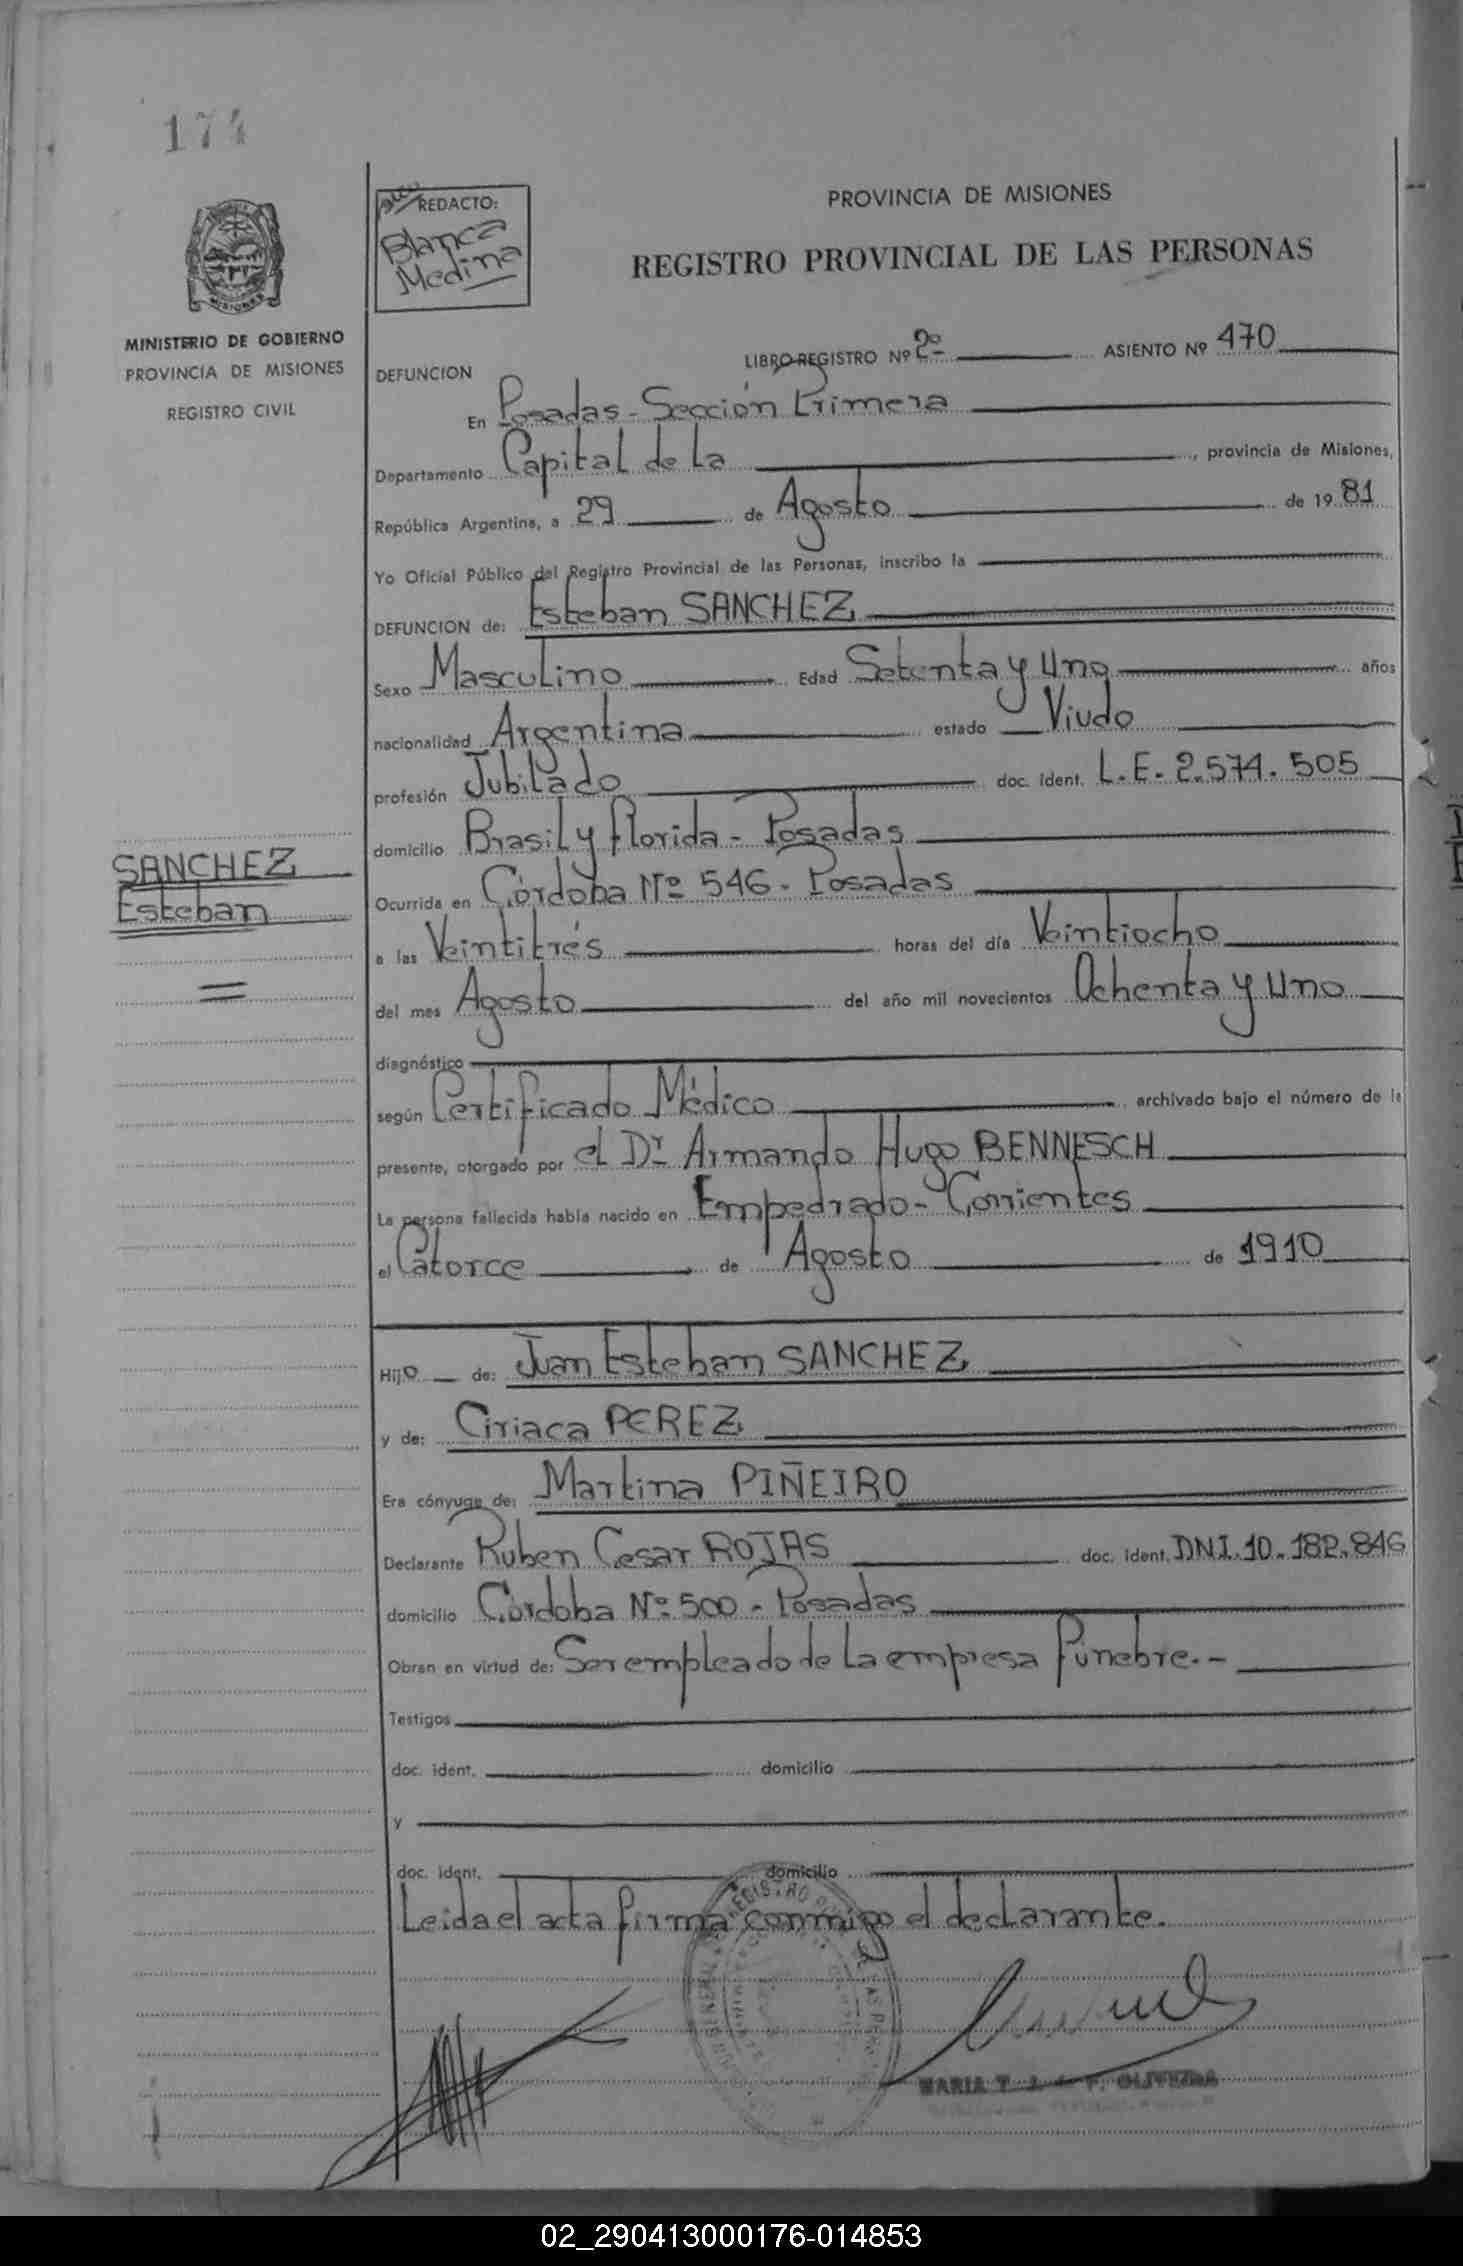 174
REDACTO:
Blanca
Medina
PROVINCIA DE MISIONES
REGISTRO PROVINCIAL DE LAS PERSONAS
MISIONES
MINISTERIO DE GOBIERNO
PROVINCIA DE MISIONES
REGISTRO CIVIL
DEFUNCION LIBRO-REGISTRO Nº 2º ASIENTO Nº 470
En Posadas - Sección Primera
Departamento Capital de la, provincia de Misiones,
República Argentina, a 29 de Agosto de 1981
Yo Oficial Público del Registro Provincial de las Personas, inscribo la
DEFUNCION de: Esteban SANCHEZ
Sexo Masculino Edad Setenta y Uno años
nacionalidad Argentina estado Viudo
profesión Jubilado doc. ident. L.E. 2.574.505
domicilio Brasil y Florida - Posadas
SANCHEZ
Esteban
Ocurrida en Córdoba Nº 546 - Posadas
a las Veintitrés horas del día Veintiocho
del mes Agosto del año mil novecientos Ochenta y Uno
diagnóstico
según Certificado Médico archivado bajo el número de la
presente, otorgado por el Dr Armando Hugo BENNESCH
La persona fallecida había nacido en Empedrado - Corrientes
el Catorce de Agosto de 1910
Hijo de: Juan Esteban SANCHEZ
y de: Ciriaca PEREZ
Era cónyuge de: Martina PIÑEIRO
Declarante Ruben Cesar ROJAS doc. ident. DNI. 10.182.846
domicilio Córdoba Nº 500 - Posadas
Obran en virtud de: Ser empleado de la empresa fúnebre.-
Testigos
doc. ident. domicilio
y
doc. ident. domicilio
Leida el acta firma conmigo el declarante.
MARIA T. OLIVEIRA
02_290413000176-014853